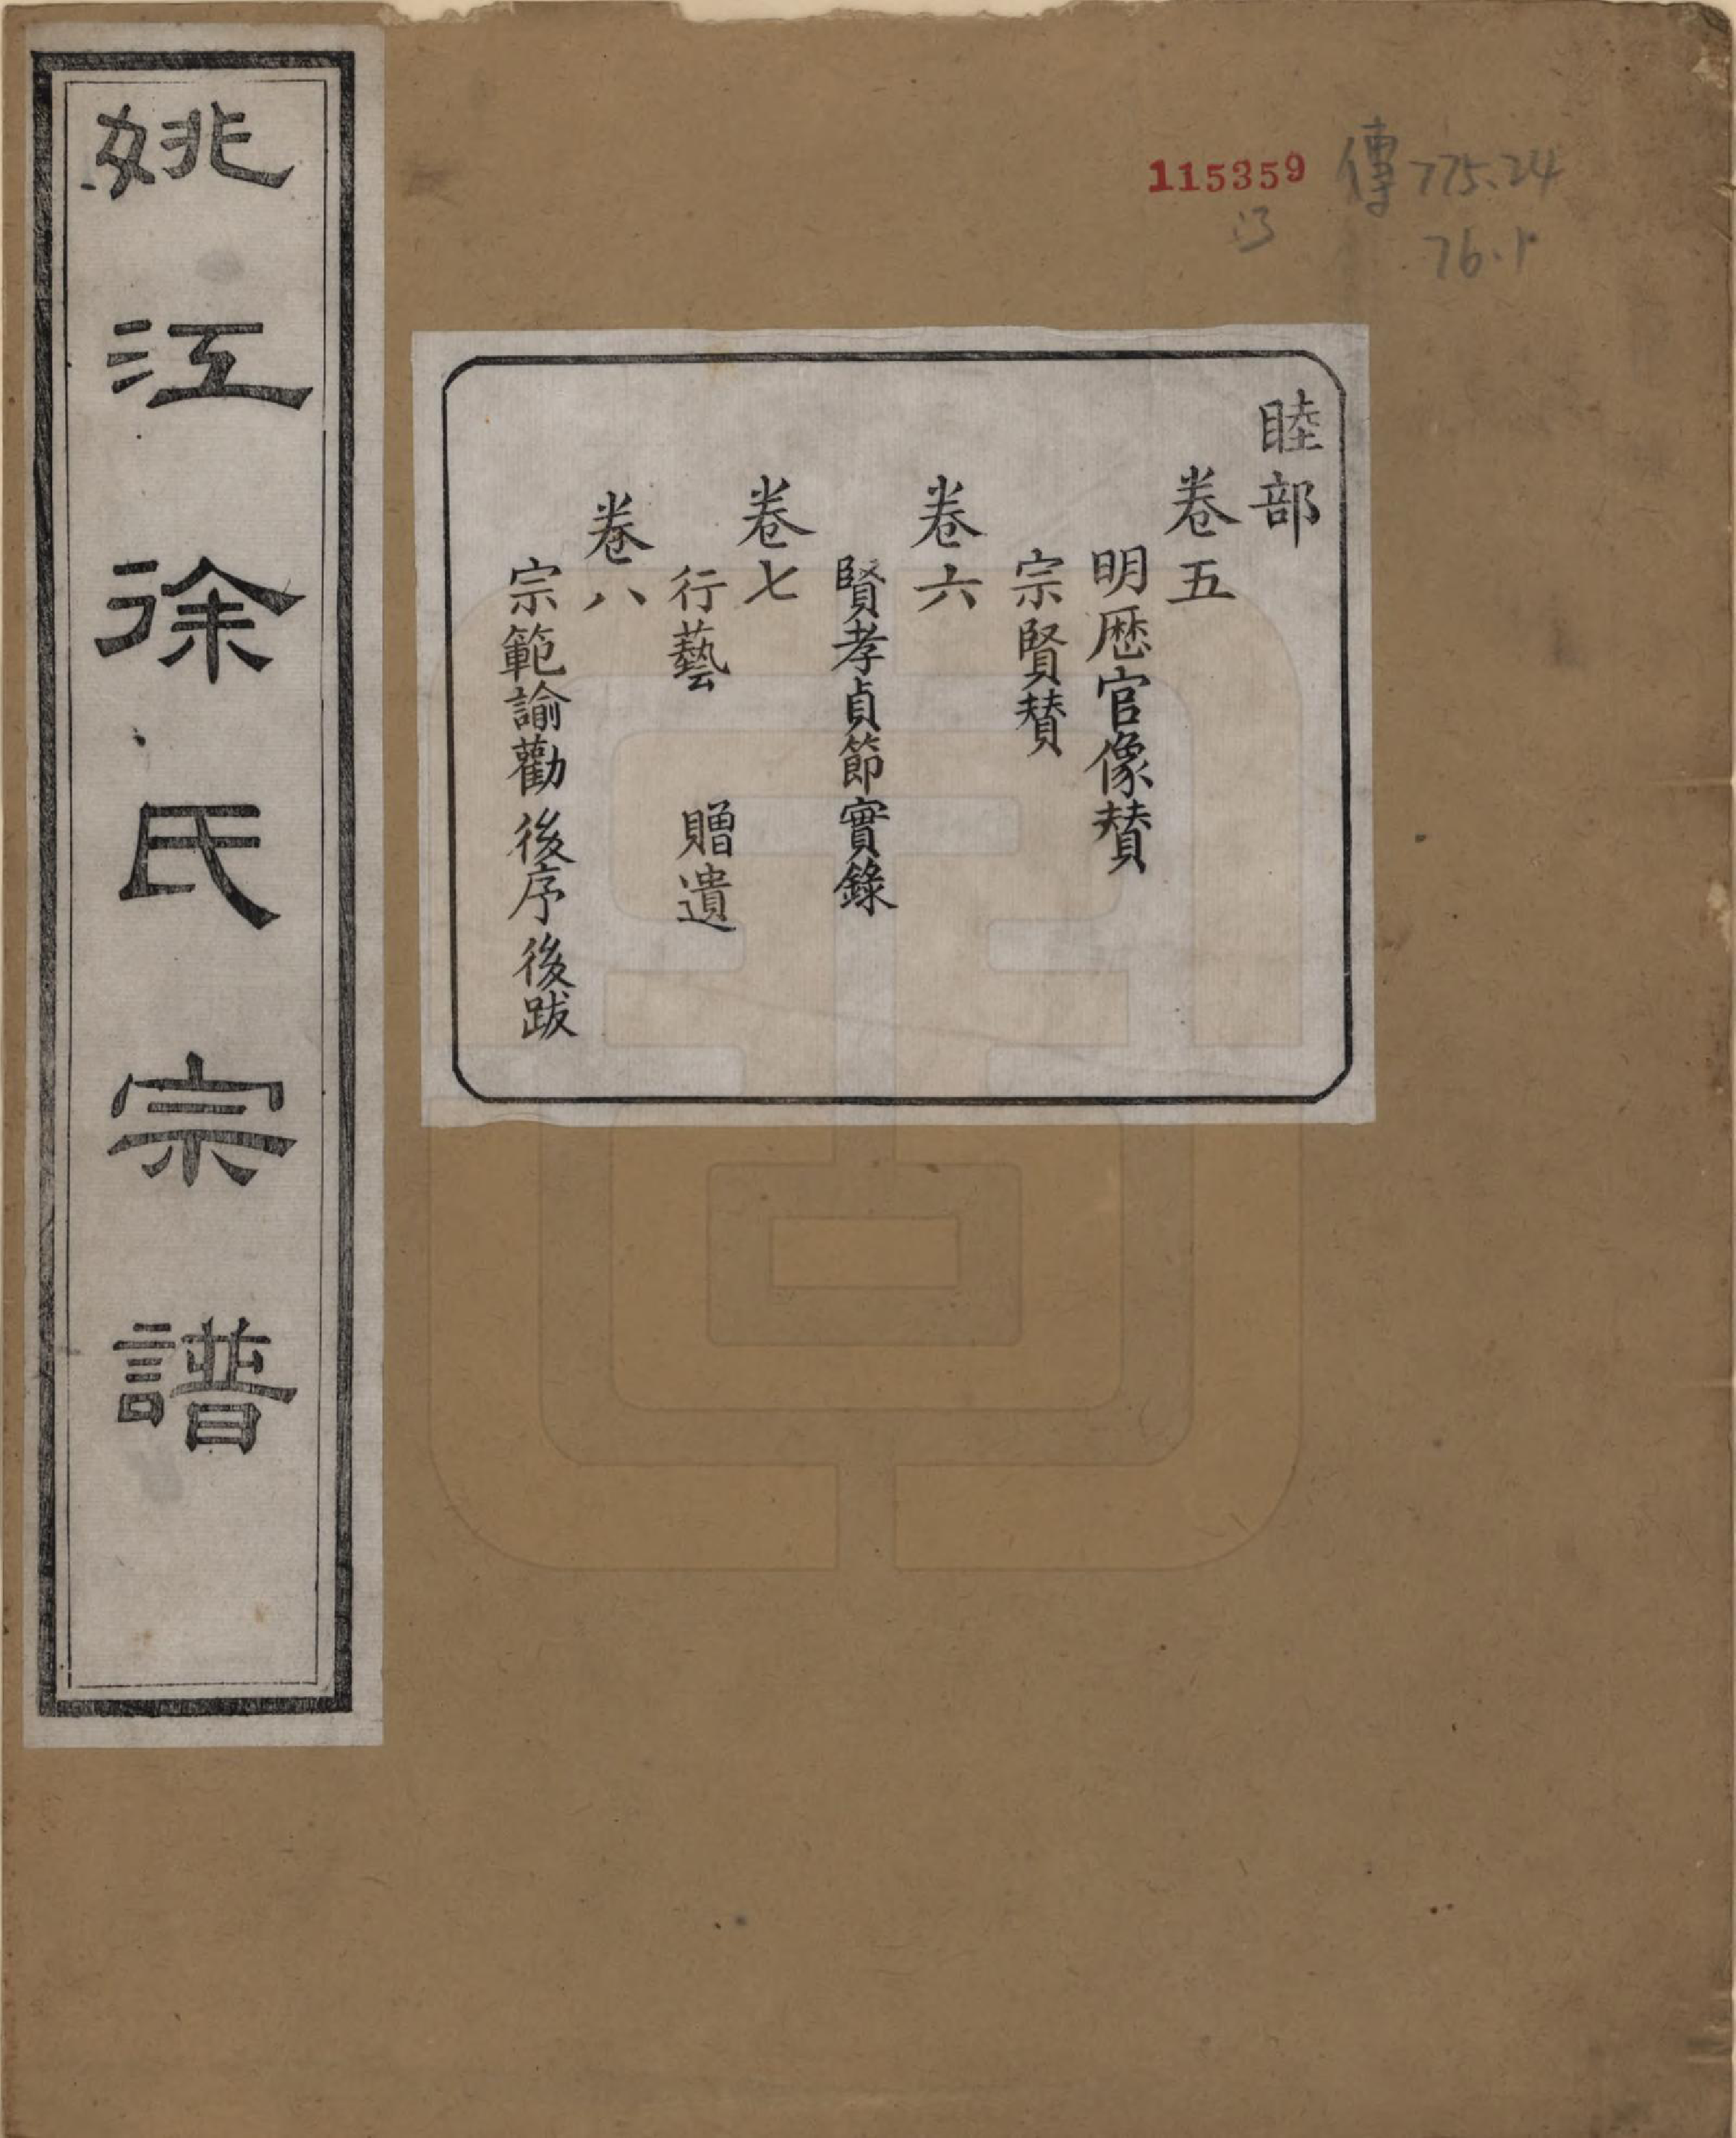 姚江徐氏宗譜
115359 傳775.24
13 76.1
睦部
卷五
明歷官像賛
宗賢賛
卷六
賢孝貞節實錄
卷七
行藝 贈遺
卷八
宗範諭勸 後序 後跋